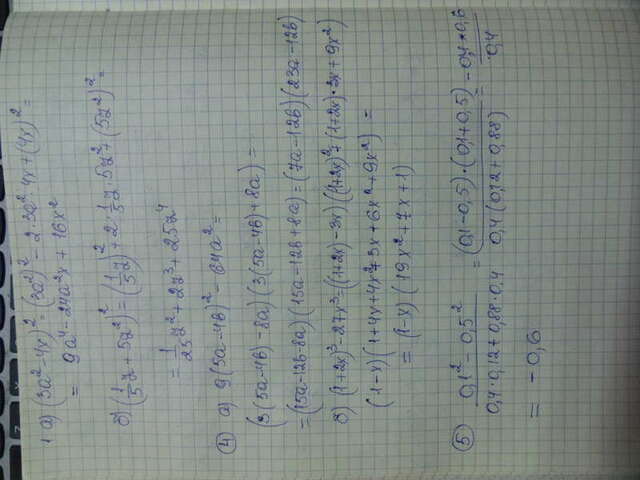 1 а) (3a² - 4x)² = (3a²)² - 2·3a²·4x + (4x)² =
= 9a⁴ - 24a²x + 16x²
б) (1/5 z + 5z²)² = (1/5 z)² + 2·1/5 z·5z² + (5z²)² =
= 1/25 z² + 2z³ + 25z⁴
④ а) 9(5a-4b)² - 64a² =
(3(5a-4b) - 8a)(3(5a-4b) + 8a) =
= (15a-12b-8a)(15a-12b+8a) = (7a-12b)(23a-12b)
б) (1+2x)³ - 27x³ = ((1+2x) - 3x)((1+2x)² + (1+2x)·3x + 9x²)
(1-x)(1+4x+4x²+3x+6x²+9x²) =
= (1-x)(19x²+7x+1)
⑤ (0,1² - 0,5²)/(0,4·0,12+0,88·0,4) = ((0,1-0,5)·(0,1+0,5))/(0,4(0,12+0,88)) = (-0,4·0,6)/0,4
= -0,6